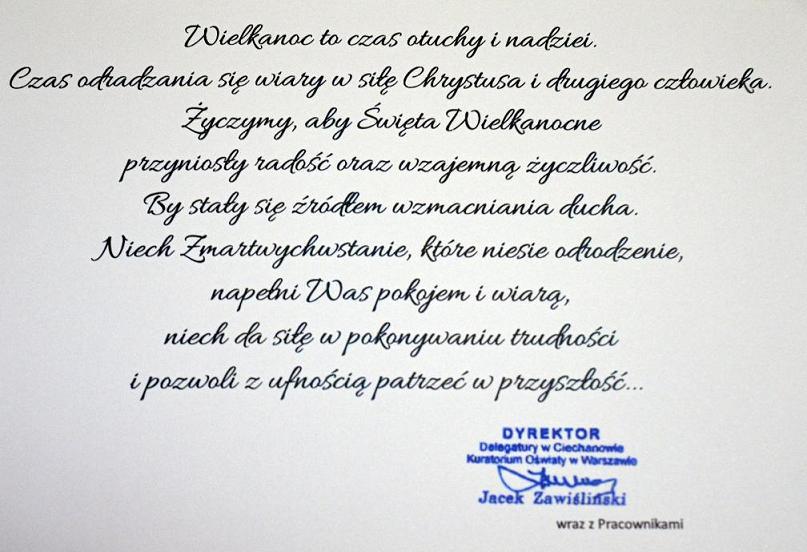 Wielkanoc to czas otuchy i nadziei.
Czas odradzania się wiary w siłę Chrystusa i drugiego człowieka.
Życzymy, aby Święta Wielkanocne
przyniosły radość oraz wzajemną życzliwość.
By stały się źródłem wzmacniania ducha.
Niech Zmartwychwstanie, które niesie odrodzenie,
napełni Was pokojem i wiarą,
niech da siłę w pokonywaniu trudności
i pozwoli z ufnością patrzeć w przyszłość...
DYREKTOR
Delegatury w Ciechanowie
Kuratorium Oświaty w Warszawie
Jacek Zawiśliński
wraz z Pracownikami